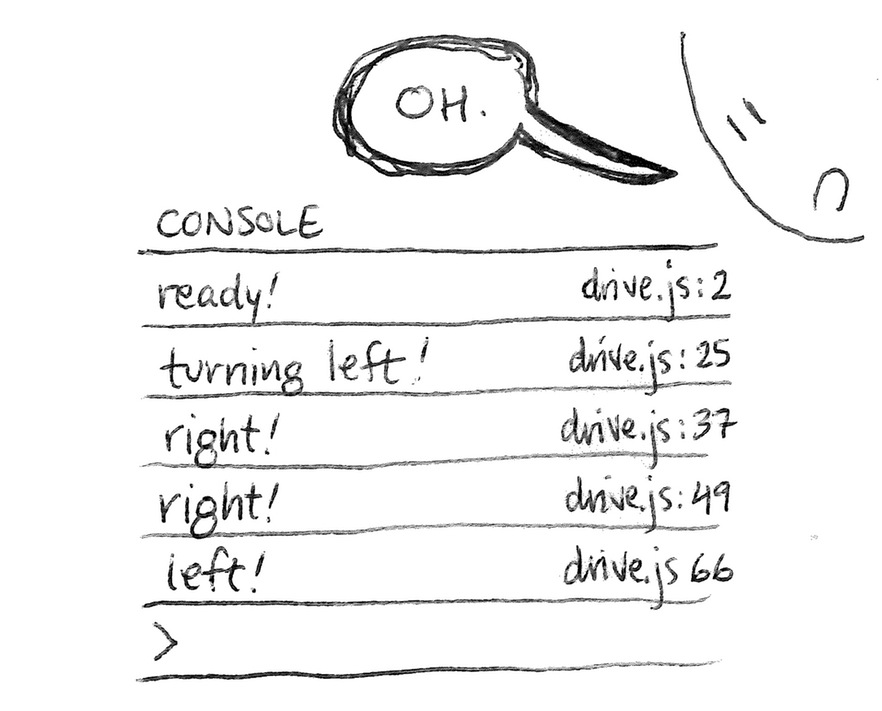 OH.
CONSOLE
ready! drive.js:2
turning left! drive.js:25
right! drive.js:37
right! drive.js:49
left! drive.js 66
>